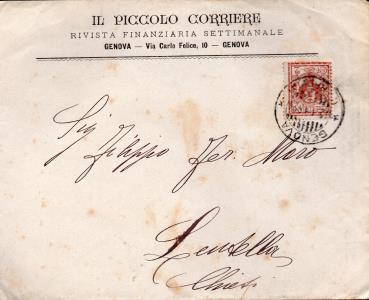 IL PICCOLO CORRIERE
RIVISTA FINANZIARIA SETTIMANALE
GENOVA — Via Carlo Felice, 10 — GENOVA
GENOVA
Sig
Filippo De Moro
Lentella
Chieti